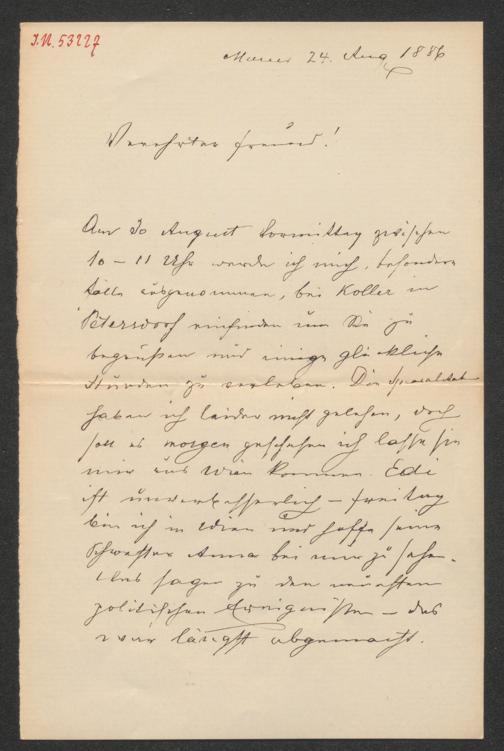 I.N. 53227
Mauer 24. Aug 1886
Verehrter Freund!
Am 30 August Vormittag zwischen
10 – 11 Uhr werde ich mich, besondere
Fälle ausgenommen, bei Koller in
Petersdorf einfinden um Sie zu
begrüßen und einige glückliche
Stunden zu verleben. Die
haben ich leider nicht gelesen, doch
soll es morgen geschehen ich lasse sie
mir aus Wien kommen. Edi
ist unverbesserlich – Freitag
bin ich in Wien und hoffe seine
Schwester Anna bei mir zu sehen.
Was sagen zu den neuesten
politischen Ereignissen – das
war längst abgemacht.